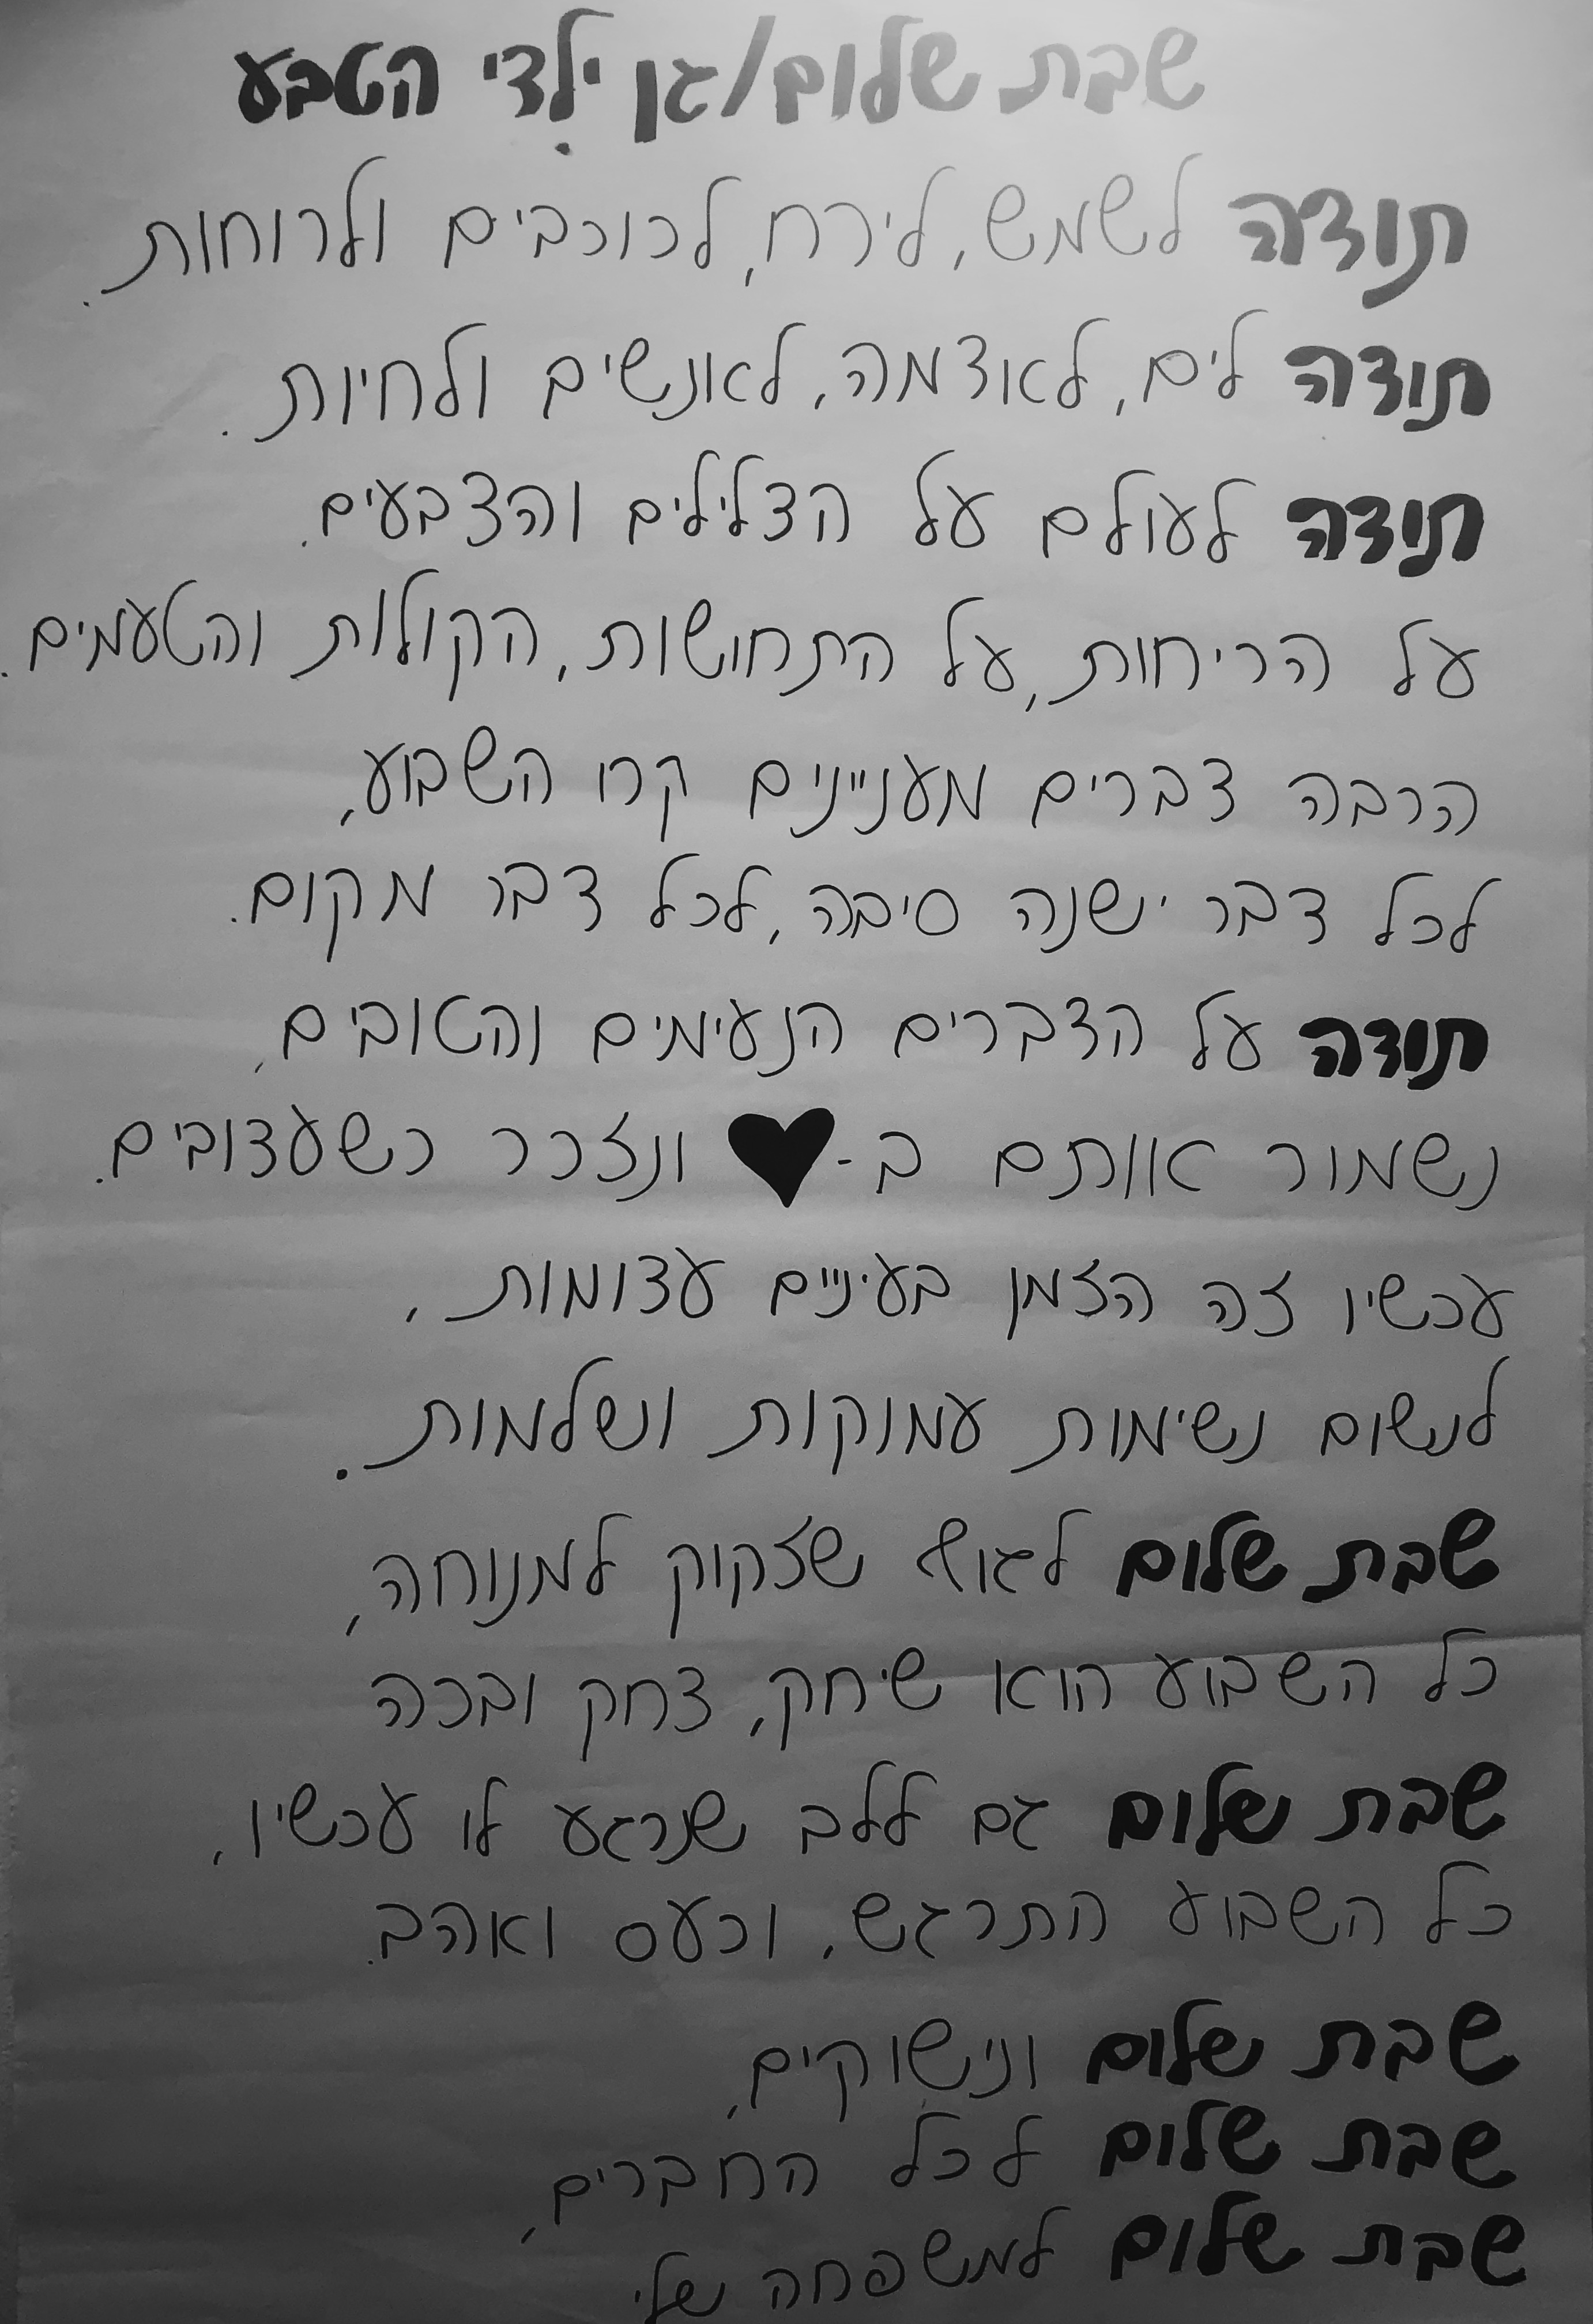 שבת שלום/גן ילדי הטבע
תודה לשמש, לירח, לכוכבים ולרוחות.
תודה לים, לאדמה, לאנשים ולחיות.
תודה לעולם על הצלילים והצבעים.
על הריחות, על התחושות, הקולות והטעמים.
הרבה דברים מעניינים קרו השבוע,
לכל דבר ישנה סיבה, לכל דבר מקום.
תודה על הדברים הנעימים והטובים,
נשמור אותם ב-♥ ונזכר כשעצובים.
עכשיו זה הזמן בעיניים עצומות,
לנשום נשימות עמוקות ושלמות.
שבת שלום לגוף שזקוק למנוחה,
כל השבוע הוא שיחק, צחק ובכה
שבת שלום גם ללב שנרגע לו עכשיו,
כל השבוע התרגש, וכעס ואהב.
שבת שלום ונישוקים,
שבת שלום לכל החברים,
שבת שלום למשפחה שלי